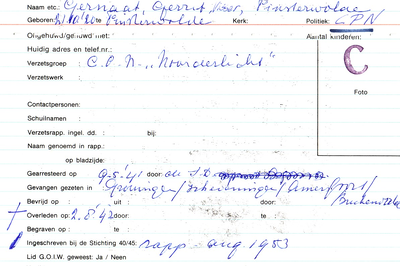 Naam etc.: Gernaat, Gerrit, Finsterwolde
Geboren: Finsterwolde Kerk: Politiek: CPN
Ongehuwd/gehuwd met: Aantal kinderen:
Huidig adres en telef.nr.:
Verzetsgroep : C.P.N. „Noorderlicht"
Verzetswerk :
C
Foto
Contactpersonen:
Schuilnaam :
Verzetsrapp. ingel. dd. : bij:
Naam genoemd in rapp.:
op bladzijde:
Gearresteerd op : 9-5-'41 door: de S.D.
Gevangen gezeten in : Groningen/Scheveningen/Amersfoort/
Buchenwalde
Bevrijd op : uit : door :
Overleden op : 2.8.'42 door: te :
Begraven op : te :
Ingeschreven bij de Stichting 40/45: rapp. aug. 1953
Lid G.O.I.W. geweest: Ja / Neen